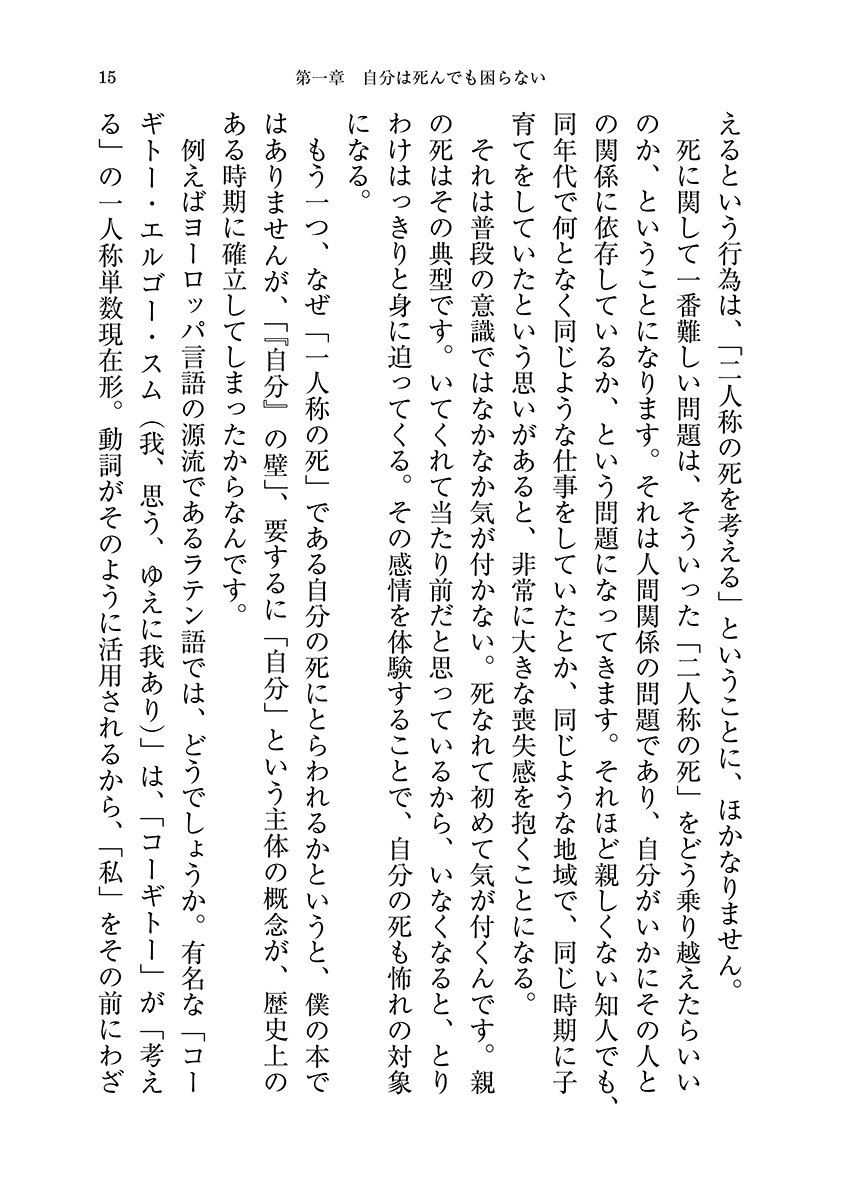 15
第一章　自分は死んでも困らない
えるという行為は、「二人称の死を考える」ということに、ほかなりません。
　死に関して一番難しい問題は、そういった「二人称の死」をどう乗り越えたらいい
のか、ということになります。それは人間関係の問題であり、自分がいかにその人と
の関係に依存しているか、という問題になってきます。それほど親しくない知人でも、
同年代で何となく同じような仕事をしていたとか、同じような地域で、同じ時期に子
育てをしていたという思いがあると、非常に大きな喪失感を抱くことになる。
　それは普段の意識ではなかなか気が付かない。死なれて初めて気が付くんです。親
の死はその典型です。いてくれて当たり前だと思っているから、いなくなると、とり
わけはっきりと身に迫ってくる。その感情を体験することで、自分の死も怖れの対象
になる。
　もう一つ、なぜ「一人称の死」である自分の死にとらわれるかというと、僕の本で
はありませんが、「『自分』の壁」、要するに「自分」という主体の概念が、歴史上の
ある時期に確立してしまったからなんです。
　例えばヨーロッパ言語の源流であるラテン語では、どうでしょうか。有名な「コー
ギトー・エルゴー・スム（我、思う、ゆえに我あり）」は、「コーギトー」が「考え
る」の一人称単数現在形。動詞がそのように活用されるから、「私」をその前にわざ